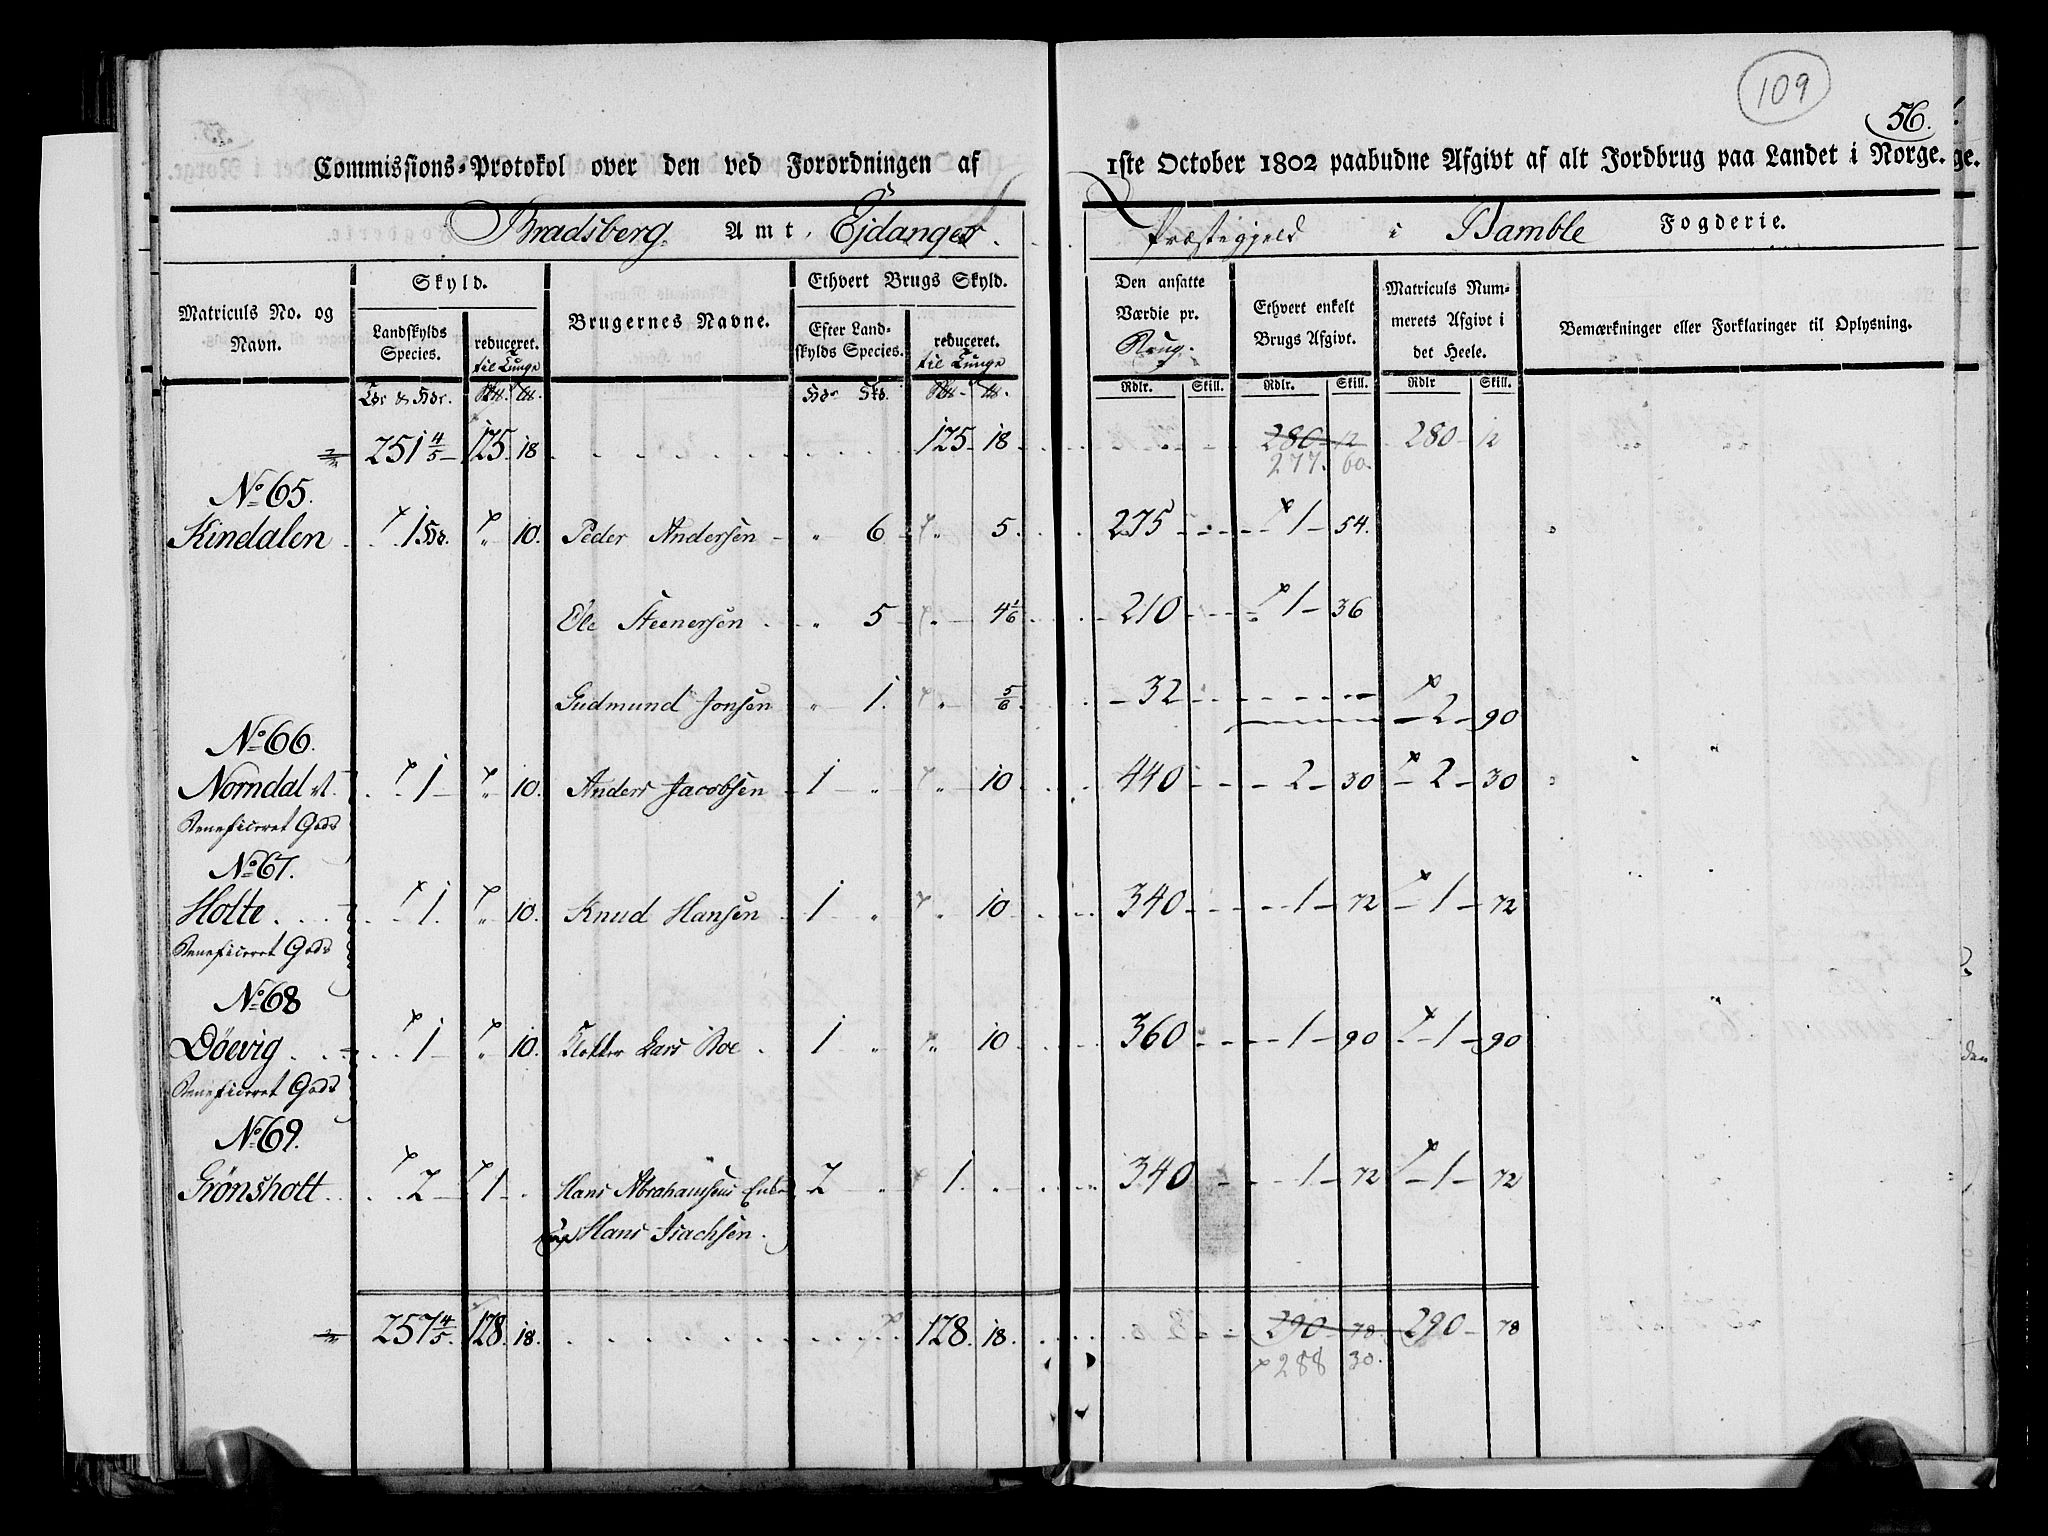 109
56.
Commissions-Protokol over den ved Forordningen af 1ste October 1802 paabudne Afgivt af alt Jordbrug paa Landet i Norge.
Bradsberg Amt, Ejdanger Præstegjeld i Bamble Fogderie.
Matriculs No. og Navn. Skyld. Brugernes Navne. Ethvert Brugs Skyld. Den ansatte Værdie pr. Ethvert enkelt Brugs Afgivt. Matriculs Nummerets Afgivt i det Heele. Bemærkninger eller Forklaringer til Oplysning.
Landskylds Species. reduceret. til Tunge Efter Landskylds Species. reduceret. til Tunge
Rdlr. Skill. Rdlr. Skill. Rdlr Skill.
251 4/5 125. 18 125. 18 280 12 280 12
277. 60.
No 65.
Kindalen 1 10. Peder Andersen 6 5. 275 1 54.
Ole Steenersen 5 4 1/6 210 1 36
Gudmund Jonsen 1. 5/6 32 2 90
No 66.
Norndal 1 10. Anders Jacobsen 1 10 440 2 30 2 30
Beneficeret Gods
No 67.
Holte 1. 10. Knud Hansen 1 10 340 1 72 1 72
Beneficeret Gods
No 68
Döevig 1 10. Lars Boe 1 10 360 1 90 1 90
Beneficeret Gods
No 69.
Grönsholt 2 1 Hans Abrahamsens Enke 2 1. 340 1 72 1 72
Hans Isachsen.
257 4/5. 128. 18. 128. 18. 290 78 290 78
288 30.